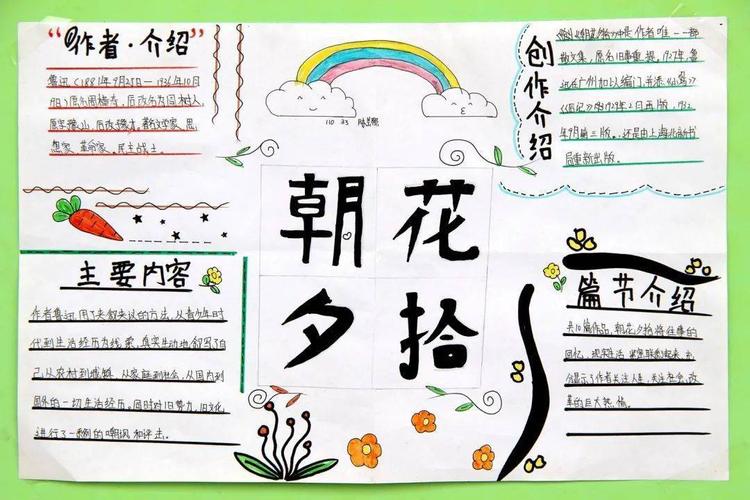 “作者·介绍”
鲁迅(1881年9月25日—1936年10月
19日)原名周樟寿,后改名为周树人,
原字豫山,后改豫才,著名文学家、思
想家、革命家、民主战士。
110 23
创作介绍
散文集,原名旧事重提,1927年,鲁
迅在广州加以编订,并添《小引》
《后记》1928年2月再版,1932
年9月第三版。还是由上海北新书
局重新出版。
朝花
夕拾
主要内容
作者鲁迅用了夹叙夹议的方法,以青少年时
代到生活经历为线索,真实生动地叙写了自
己从农村到城镇,从家庭到社会,从国内到
国外的一切生活经历。同时对旧势力,旧文化,
进行了一系列的嘲讽和评击。
篇节介绍
共10篇作品,朝花夕拾将往事的
回忆,现实生活 紧密联系起来,充
分显示了作者关注人生,关注社会,改
革的巨大热情。